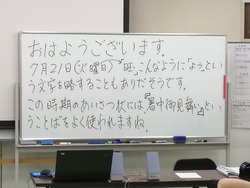 おはようございます.
7月21日(火曜日)"旺,こんなように「よう」とい
う文字を略することもありだそうです.
この時期のあいさつ状には「暑中御見舞い」とい
うことばをよく使われますね.